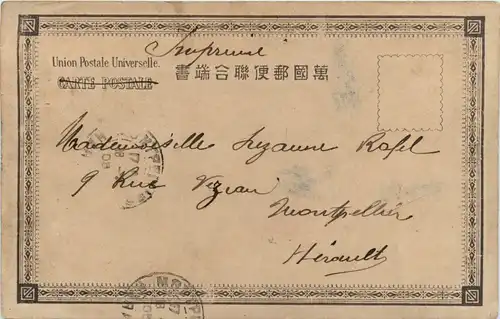 Imprimé
Union Postale Universelle.
CARTE POSTALE
書端合聯便郵國萬
Mademoiselle Suzanne Rafel
9 Rue Vézian
Montpellier
Hérault